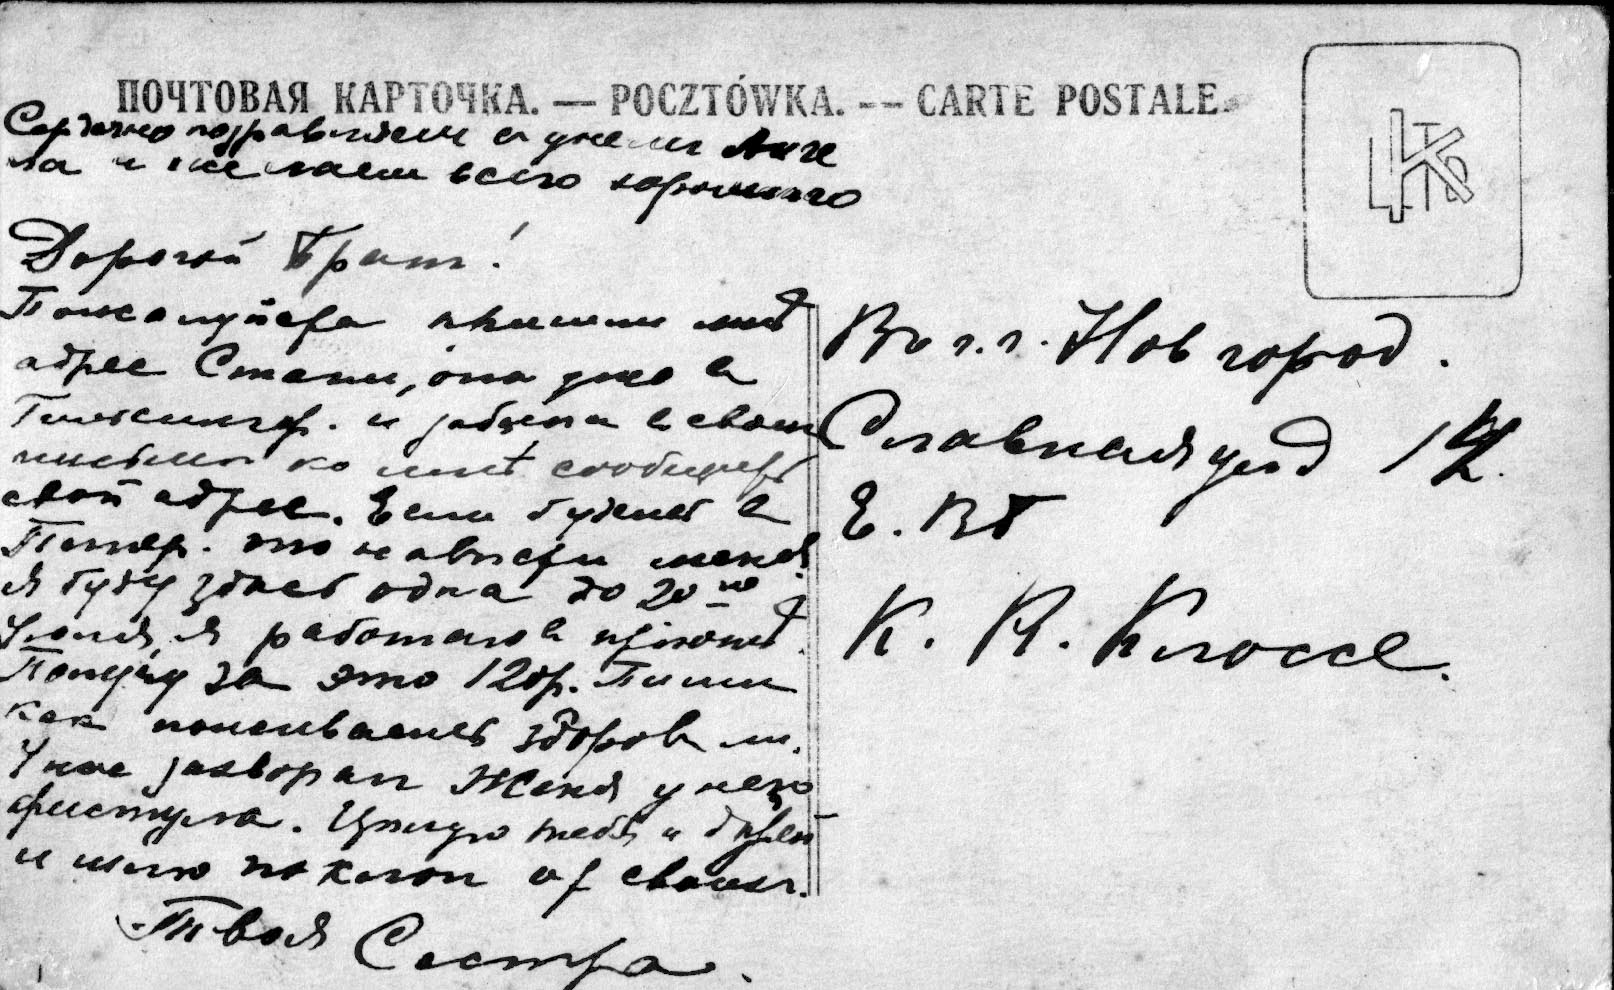 ПОЧТОВАЯ КАРТОЧКА. — POCZTÓWKA. -- CARTE POSTALE.
Сердечно поздравляем с днем Анге
ла и желаем всего хорошаго
Дорогой Брат!
Пожалуйста пришли мнѣ
адрес Стаси, она уже в
Гельсингф. и забыла в своем
письмѣ ко мнѣ сообщить
свой адрес. Если будешь в
Петер. то навѣсти меня.
Я буду здѣсь одна до 20 го
Июля, я работаю в
Получу за это 120р. Пиши
как поживаешь здоров ли.
У нас захворал Женя у него
фистула. Цѣлую тебя и дѣтей
и шлю поклон от своих.
Твоя Сестра.
Въ г. Новгород.
Славная улд
Е. ВБ
К. К. Клоссе.